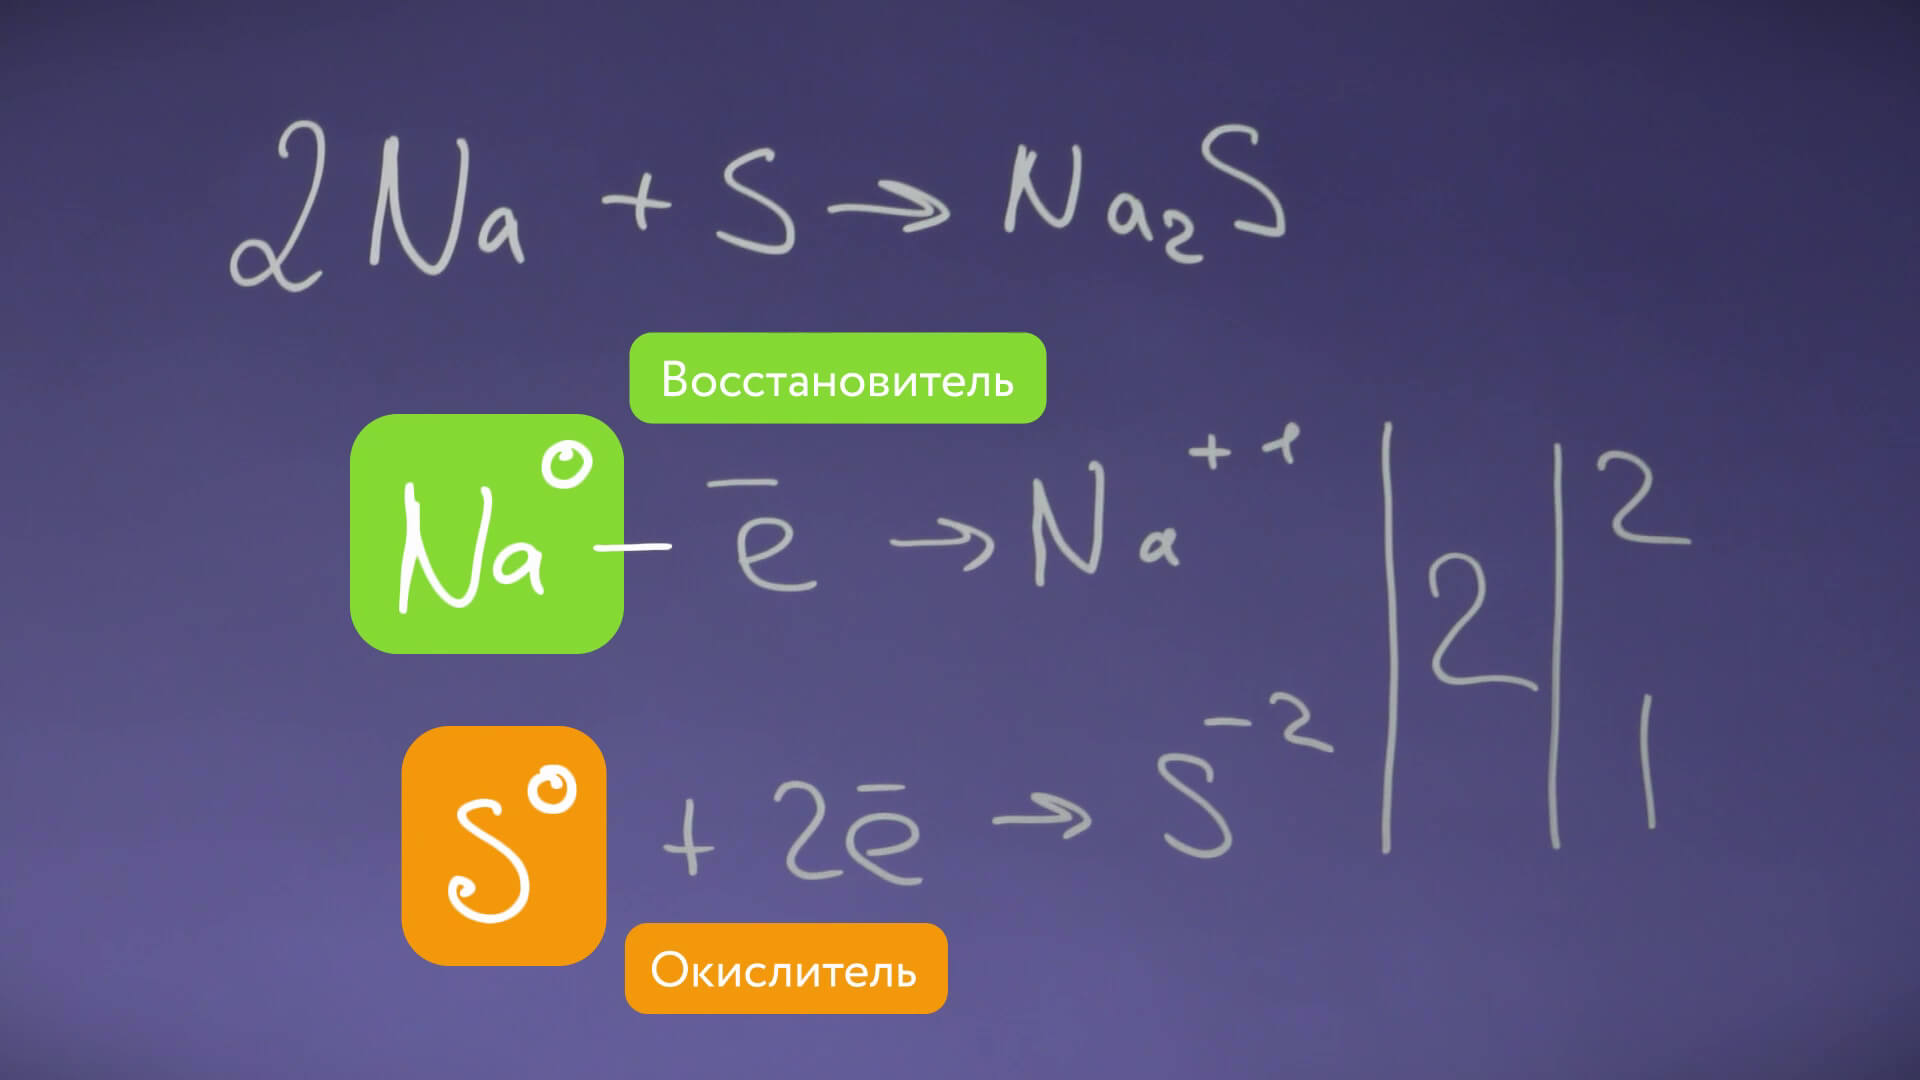 2Na + S → Na₂S
Восстановитель
Na⁰ – e̅ → Na⁺¹ | | 2
2
S⁰ + 2e̅ → S⁻² | | 1
Окислитель